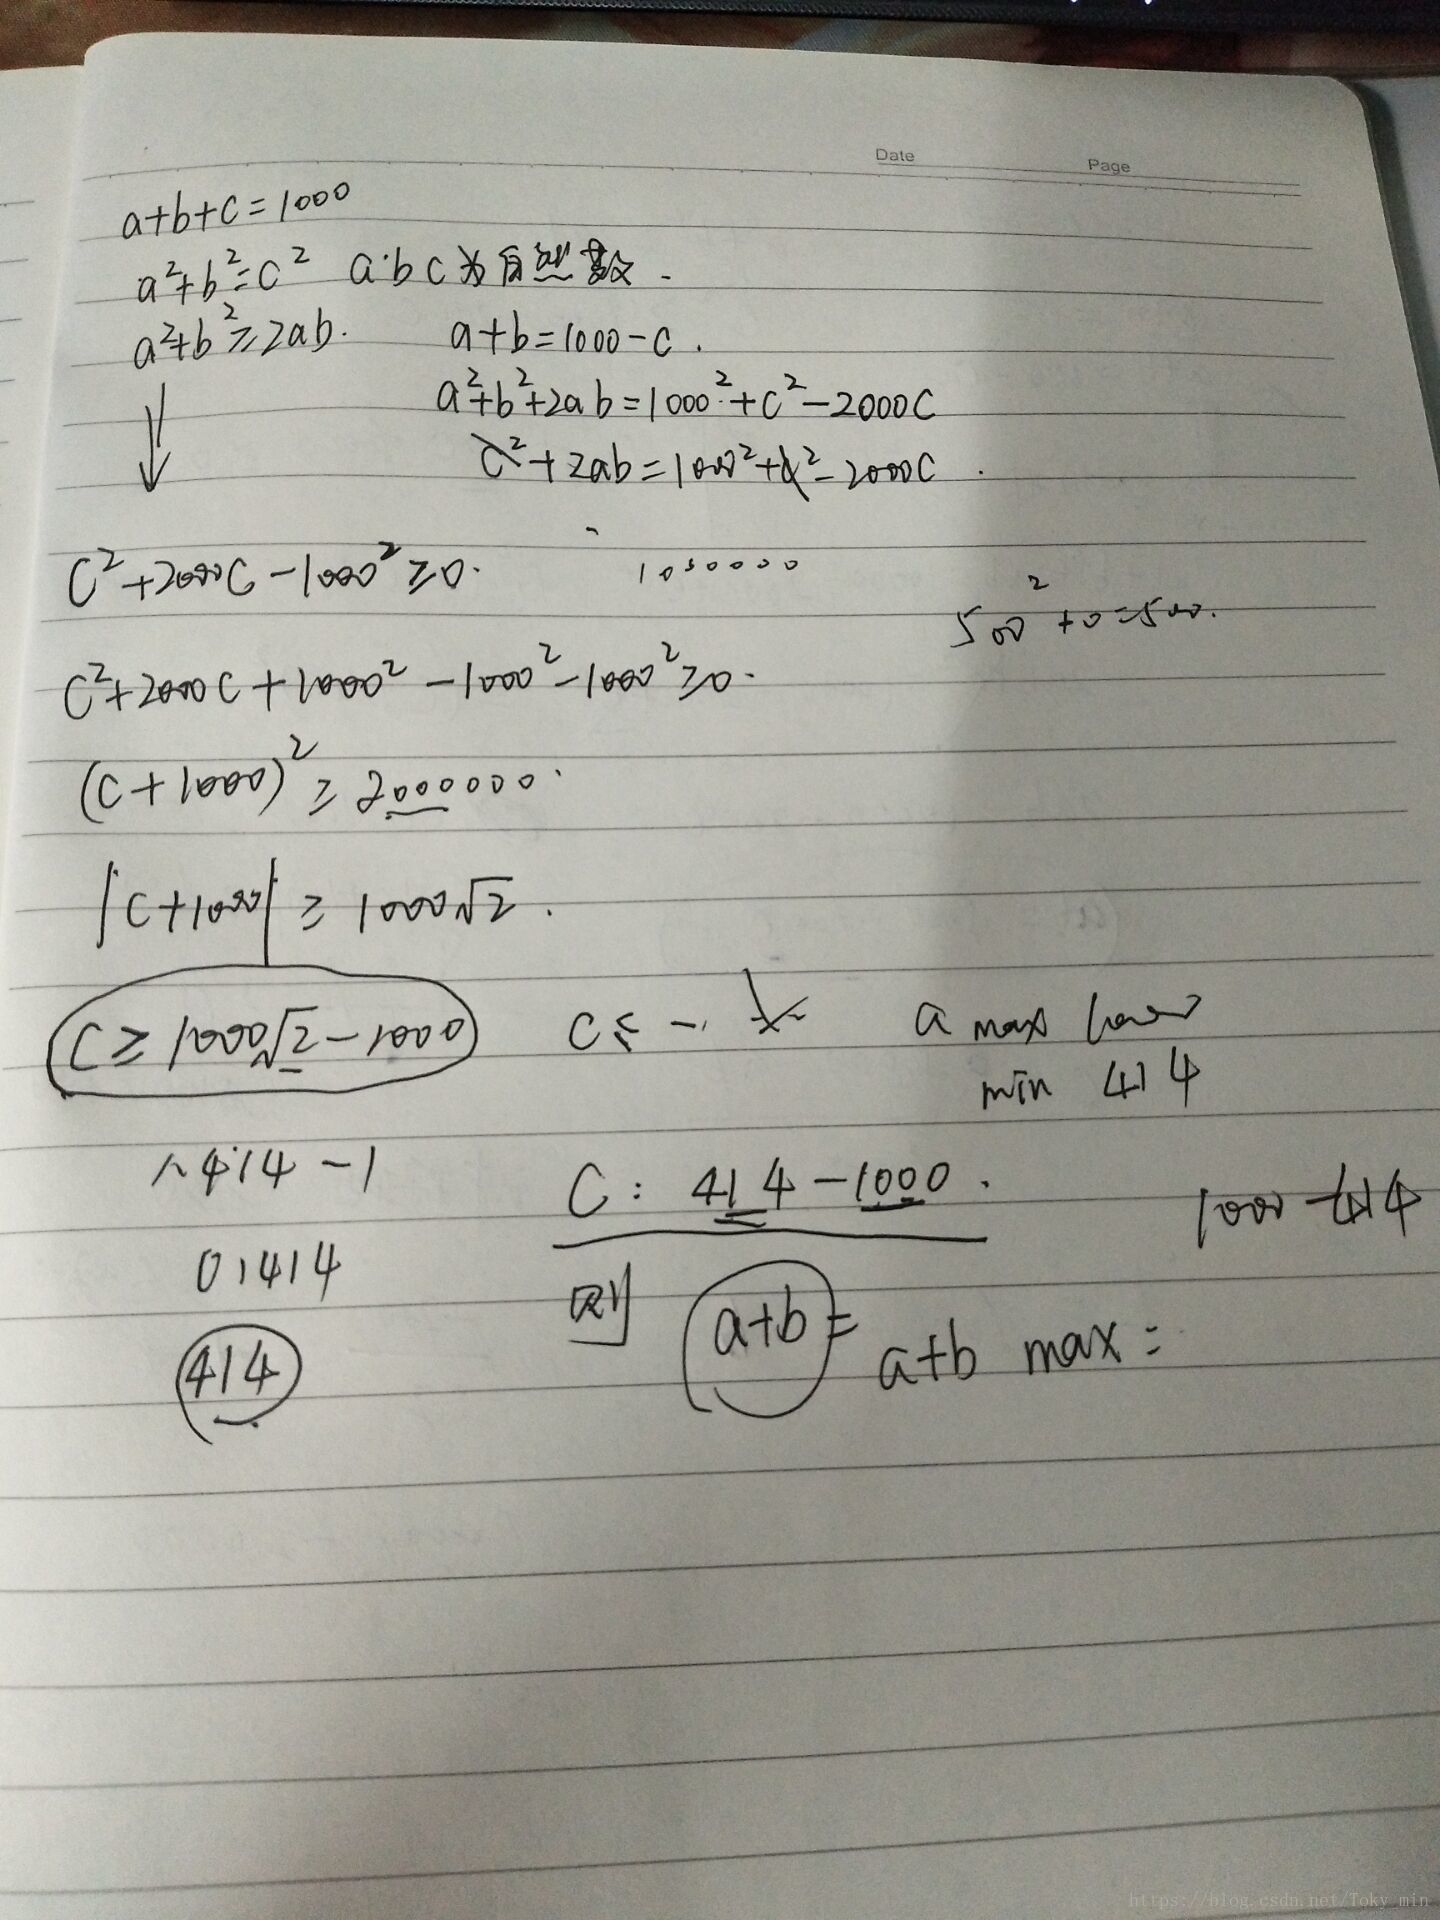 Date Page
a+b+c=1000
a²+b²=c² a·b c为自然数.
a²+b²≥2ab. a+b=1000-c.
a²+b²+2ab=1000²+c²-2000c
c²+2ab=1000²+c²-2000c.
c²+2000c-1000²≥0. 1000000
500²+0=500.
c²+2000c+1000²-1000²-1000²≥0.
(c+1000)²≥2000000.
|c+1000|≥1000√2.
c≥1000√2-1000 c≤-. a max
min 414
1.414-1 c: 414-1000. 1000-414
0.414
则 a+b= a+b max=
414
https://blog.csdn.net/Toky_min